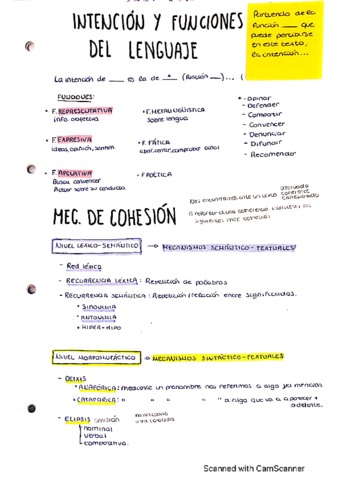 INTENCIÓN Y FUNCIONES
DEL LENGUAJE
Partiendo de la
función ___ que
puede percibirse
en este texto,
la intención...
La intención de ___ es la de * (función __)... (
FUNCIONES:
• F. REPRESENTATIVA
info. objetiva
• F. METALINGÜÍSTICA
sobre lengua
• F. EXPRESIVA
ideas, opinión, sentim.
• F. FÁTICA
abrir, cerrar, comprobar canal
• F. APELATIVA
Busca convencer
Actuar sobre su conducta
• F. POÉTICA
* - Opinar
- Defender
- Compartir
- Convencer
- Denunciar
- Difundir
- Recomendar
MEC. DE COHESIÓN
Nos encontramos ante un texto
adecuado
coherente
cohesionado
NIVEL LÉXICO-SEMÁNTICO → MECANISMOS SEMÁNTICO-TEXTUALES
- Red léxica
- RECURRENCIA LÉXICA: Repetición de palabras
- RECURRENCIA SEMÁNTICA: Repetición/relación entre significados.
• SINONIMIA
• ANTONIMIA
• HIPER-HIPO
NIVEL MORFOSINTÁCTICO → MECANISMOS SINTÁCTICO-TEXTUALES
- DEIXIS
• ANAFÓRICA: mediante un pronombre nos referimos a algo ya mencion.
• CATAFÓRICA: " " " " " a algo que va a aparecer +
adelante.
- ELIPSIS omisión
nominal
verbal
comparativa.
Scanned with CamScanner